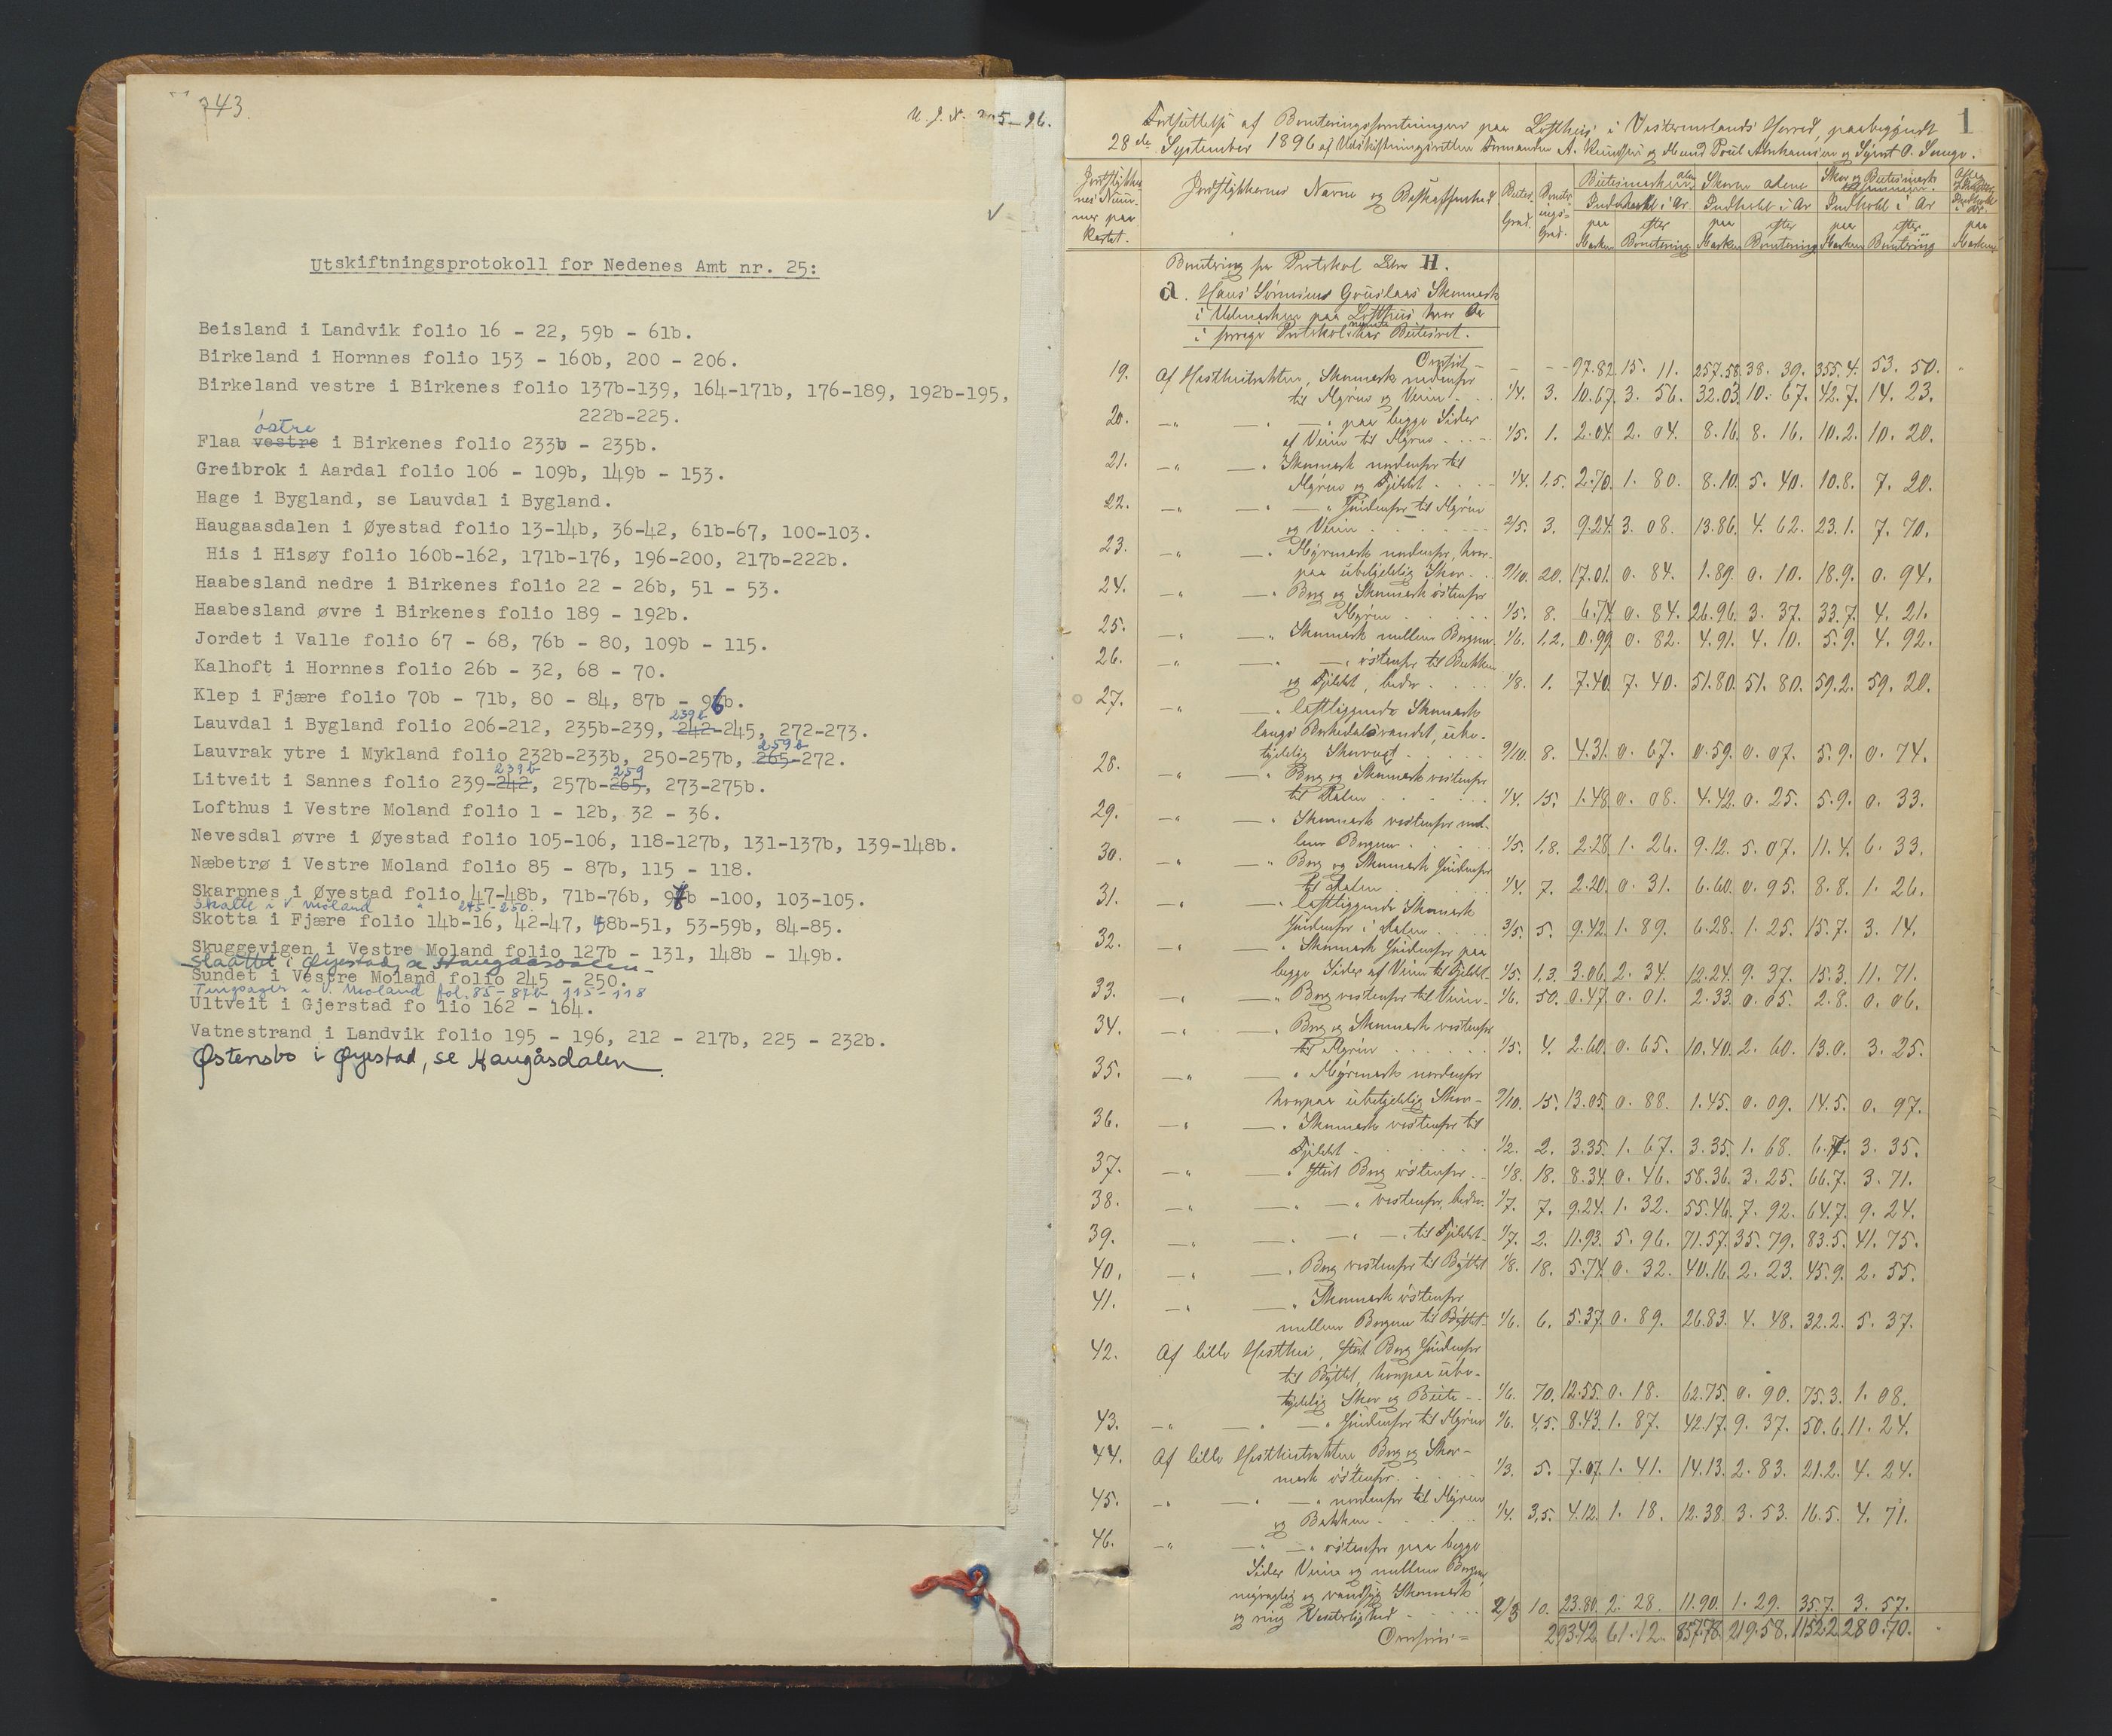 743.
U. J. N. 25-96.
Utskiftningsprotokoll for Nedenes Amt nr. 25:
Beisland i Landvik folio 16 - 22, 59b - 61b.
Birkeland i Hornnes folio 153 - 160b, 200 - 206.
Birkeland vestre i Birkenes folio 137b-139, 164-171b, 176-189, 192b-195,
222b-225.
østre
Flaa vestre i Birkenes folio 233b - 235b.
Greibrok i Aardal folio 106 - 109b, 149b - 153.
Hage i Bygland, se Lauvdal i Bygland.
Haugaasdalen i Øyestad folio 13-14b, 36-42, 61b-67, 100-103.
His i Hisøy folio 160b-162, 171b-176, 196-200, 217b-222b.
Haabesland nedre i Birkenes folio 22 - 26b, 51 - 53.
Haabesland øvre i Birkenes folio 189 - 192b.
Jordet i Valle folio 67 - 68, 76b - 80, 109b - 115.
Kalhoft i Hornnes folio 26b - 32, 68 - 70.
Klep i Fjære folio 70b - 71b, 80 - 84, 87b - 96b.
239b
Lauvdal i Bygland folio 206-212, 235b-239, 242-245, 272-273.
259b
Lauvrak ytre i Mykland folio 232b-233b, 250-257b, 265-272.
239b 259
Litveit i Sannes folio 239-242, 257b-265, 273-275b.
Lofthus i Vestre Moland folio 1 - 12b, 32 - 36.
Nevesdal øvre i Øyestad folio 105-106, 118-127b, 131-137b, 139-148b.
Næbetrø i Vestre Moland folio 85 - 87b, 115 - 118.
Skarpnes i Øyestad folio 47-48b, 71b-76b, 97b -100, 103-105.
Skalle i V Moland " 245-250.
Skotta i Fjære folio 14b-16, 42-47, 48b-51, 53-59b, 84-85.
Skuggevigen i Vestre Moland folio 127b - 131, 148b - 149b.
Slaatte i Øyestad, se Haugaasdalen
Sundet i Vestre Moland folio 245 - 250.
Tingsager i V. Moland fol. 85 - 87b 115 - 118
Ultveit i Gjerstad fo lio 162 - 164.
Vatnestrand i Landvik folio 195 - 196, 212 - 217b, 225 - 232b.
Østensbo i Øyestad, se Haugåsdalen.
1
Fortsættelse af Boniteringsforretningen paa Lofthus i Vestremolands Herred, paabegyndt
28de September 1896 af Udskiftningsretten Formanden A. Knudsen og Mænd Poul Abrahamsen og
Jordstykkernes Nummer paa Kartet.
Jordstykkernes Navne og Beskaffenhed
Beites Grad.
Boniterings-Grad.
Beitesmarken alene Indhold i Ar
Skoven alene Indhold i Ar
Skov og Beitesmark Indhold i Ar
paa Marken efter Bonitering paa Marken efter Bonitering paa Marken efter Bonitering paa Marken
Bonitering for Protokol Litra H.
a. Hans Sørensens Skovmark
i Udmarken paa Lofthus hvor
i forrige Protokol nævnte har Beitesret.
Overført - - - 97.82. 15. 11. 257.58. 38. 39. 355.4. 53. 50.
19. Af Hestheitrakten, Skovmark nordenfor
til Myren og Veien 1/4. 3. 10.67. 3. 56. 32.03. 10. 67. 42.7. 14. 23.
20. -"- -"- paa begge Sider
af Veien til Myren 1/5. 1. 2.04. 2. 04. 8.16. 8. 16. 10.2. 10. 20.
21. -"- -"- Skovmark nordenfor til
Myren og Fjeldet 1/4. 1,5. 2.70. 1. 80. 8.10. 5. 40. 10.8. 7. 20.
22. -"- -"- -"- søndenfor til Myren
og Veien 2/5. 3. 9.24. 3. 08. 13.86. 4. 62. 23.1. 7. 70.
23. -"- -"- Myrmark nordenfor, hvor-
paa ubetydelig Skov 9/10. 20. 17.01. 0. 84. 1.89. 0. 10. 18.9. 0. 94.
24. -"- -"- Berg og Skovmark østenfor
Myren 1/5. 8. 6.74. 0. 84. 26.96. 3. 37. 33.7. 4. 21.
25. -"- -"- Skovmark mellem Bergene 1/6. 1,2. 0.99. 0. 82. 4.91. 4. 10. 5.9. 4. 92.
26. -"- -"- -"- østenfor til Bækken
og Fjeldet, bedre 1/8. 1. 7.40. 7. 40. 51.80. 51. 80. 59.2. 59. 20.
27. -"- -"- lavtliggende Skovmark
langs Birkedalsvandet, ube-
tydelig Skovvext 9/10. 8. 4.31. 0. 67. 0.59. 0. 07. 5.9. 0. 74.
28. -"- -"- Berg og Skovmark vestenfor
til Dalen 1/4. 15. 1.48. 0. 08. 4.42. 0. 25. 5.9. 0. 33.
29. -"- -"- Skovmark vestenfor mel-
lem Bergene 1/5. 1,8. 2.28. 1. 26. 9.12. 5. 07. 11.4. 6. 33.
30. -"- -"- Berg og Skovmark søndenfor
til Dalen 1/4. 7. 2.20. 0. 31. 6.60. 0. 95. 8.8. 1. 26.
31. -"- -"- lavtliggende Skovmark
søndenfor i Dalen 3/5. 5. 9.42. 1. 89. 6.28. 1. 25. 15.7. 3. 14.
32. -"- -"- Skovmark søndenfor paa
begge Sider af Veien til Fjeldet 1/5. 1.3. 3.06. 2. 34. 12.24. 9. 37. 15.3. 11. 71.
33. -"- -"- Berg vestenfor til Veien 1/6. 50. 0.47. 0. 01. 2.33. 0. 05. 2.8. 0. 06.
34. -"- -"- Berg og Skovmark vestenfor
til Myren 1/5. 4. 2.60. 0. 65. 10.40. 2. 60. 13.0. 3. 25.
35. -"- -"- Myrmark nordenfor
hvorpaa ubetydelig Skov 9/10. 15. 13.05. 0. 88. 1.45. 0. 09. 14.5. 0. 97.
36. -"- -"- Skovmark vestenfor til
Fjeldet 1/2. 2. 3.35. 1. 67. 3.35. 1. 68. 6.7. 3. 35.
37. -"- -"- steil Berg østenfor 1/8. 18. 8.34. 0. 46. 58.36. 3. 25. 66.7. 3. 71.
38. -"- -"- -"- vestenfor, bedre 1/7. 7. 9.24. 1. 32. 55.46. 7. 92. 64.7. 9. 24.
39. -"- -"- -"- -"- til Fjeldet 1/7. 2. 11.93. 5. 96. 71.57. 35. 79. 83.5. 41. 75.
40. -"- -"- Berg vestenfor til Byttet 1/8. 18. 5.74. 0. 32. 40.16. 2. 23. 45.9. 2. 55.
41. -"- -"- Skovmark østenfor
mellem Bergene til Byttet 1/6. 6. 5.37. 0. 89. 26.83. 4. 48. 32.2. 5. 37.
42. Af lille Hesthei, steil Berg søndenfor
til Byttet, hvorpaa ube-
tydelig Skov og Beite 1/6. 70. 12.55. 0. 18. 62.75. 0. 90. 75.3. 1. 08.
43. -"- -"- -"- søndenfor til Myren 1/6. 4,5. 8.43. 1. 87. 42.17. 9. 37. 50.6. 11. 24.
44. Af lille Hestheitrakten, Berg og Skov-
mark østenfor 1/3. 5. 7.07. 1. 41. 14.13. 2. 83. 21.2. 4. 24.
45. -"- -"- -"- nordenfor til Myren
og Bækken 1/4. 3,5. 4.12. 1. 18. 12.38. 3. 53. 16.5. 4. 71.
46. -"- -"- -"- østenfor paa begge
Sider Veien og mellem Bergene
og vandsyg Skovmark
og ring 2/3 10. 23.80. 2. 28. 11.90. 1. 29. 35.7. 3. 57.
Overføres = 293.42. 61. 12. 857.78. 219. 58. 1152.2. 280. 70.